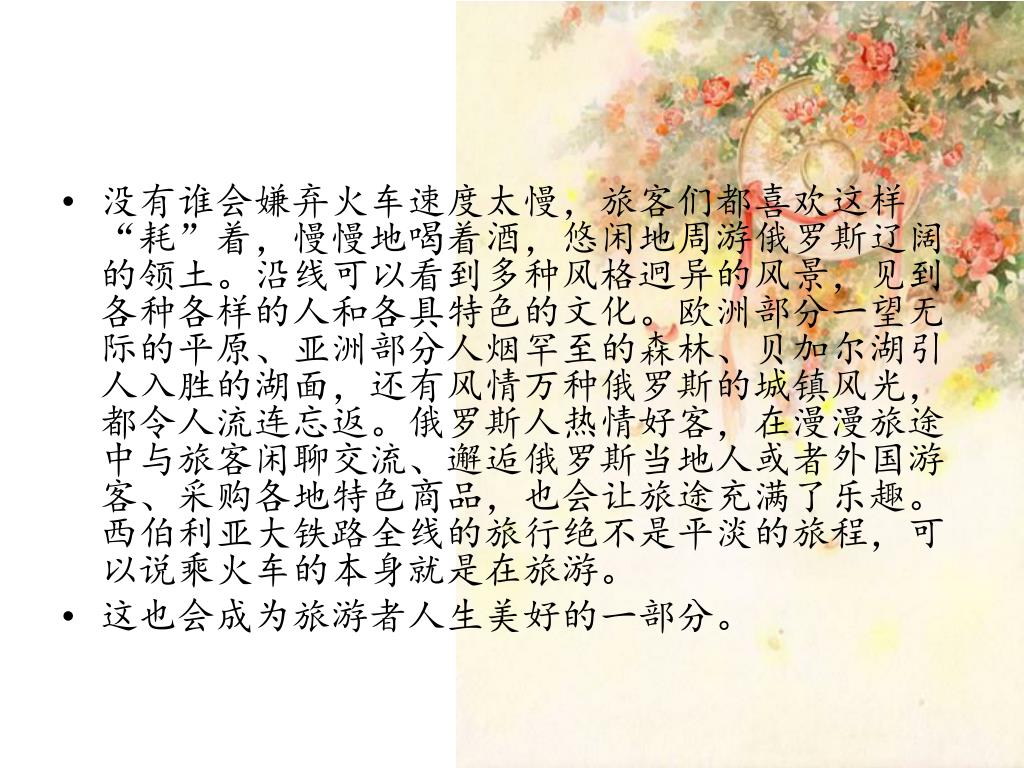 • 没有谁会嫌弃火车速度太慢，旅客们都喜欢这样
“耗”着，慢慢地喝着酒，悠闲地周游俄罗斯辽阔
的领土。沿线可以看到多种风格迥异的风景，见到
各种各样的人和各具特色的文化。欧洲部分一望无
际的平原、亚洲部分人烟罕至的森林、贝加尔湖引
人入胜的湖面，还有风情万种俄罗斯的城镇风光，
都令人流连忘返。俄罗斯人热情好客，在漫漫旅途
中与旅客闲聊交流、邂逅俄罗斯当地人或者外国游
客、采购各地特色商品，也会让旅途充满了乐趣。
西伯利亚大铁路全线的旅行绝不是平淡的旅程，可
以说乘火车的本身就是在旅游。
• 这也会成为旅游者人生美好的一部分。